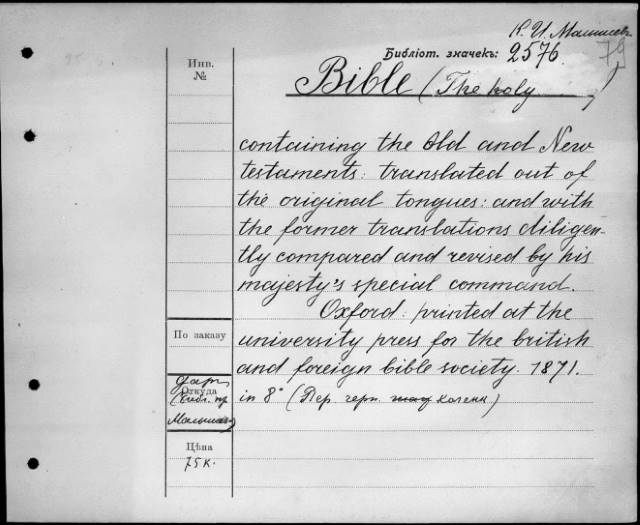 К. И. Малышев
79
Библіот. значекъ: 2576.
Инв.
№
Bible (The holy)
containing the Old and New
testaments: translated out of
the original tongues: and with
the former translations diligen-
tly compared and revised by his
majesty's special command.
Oxford: printed at the
university press for the british
and foreign bible society. 1871.
in 8° (Пер. черн. коленк)
По заказу
Откуда
даръ
Цѣна
75 к.